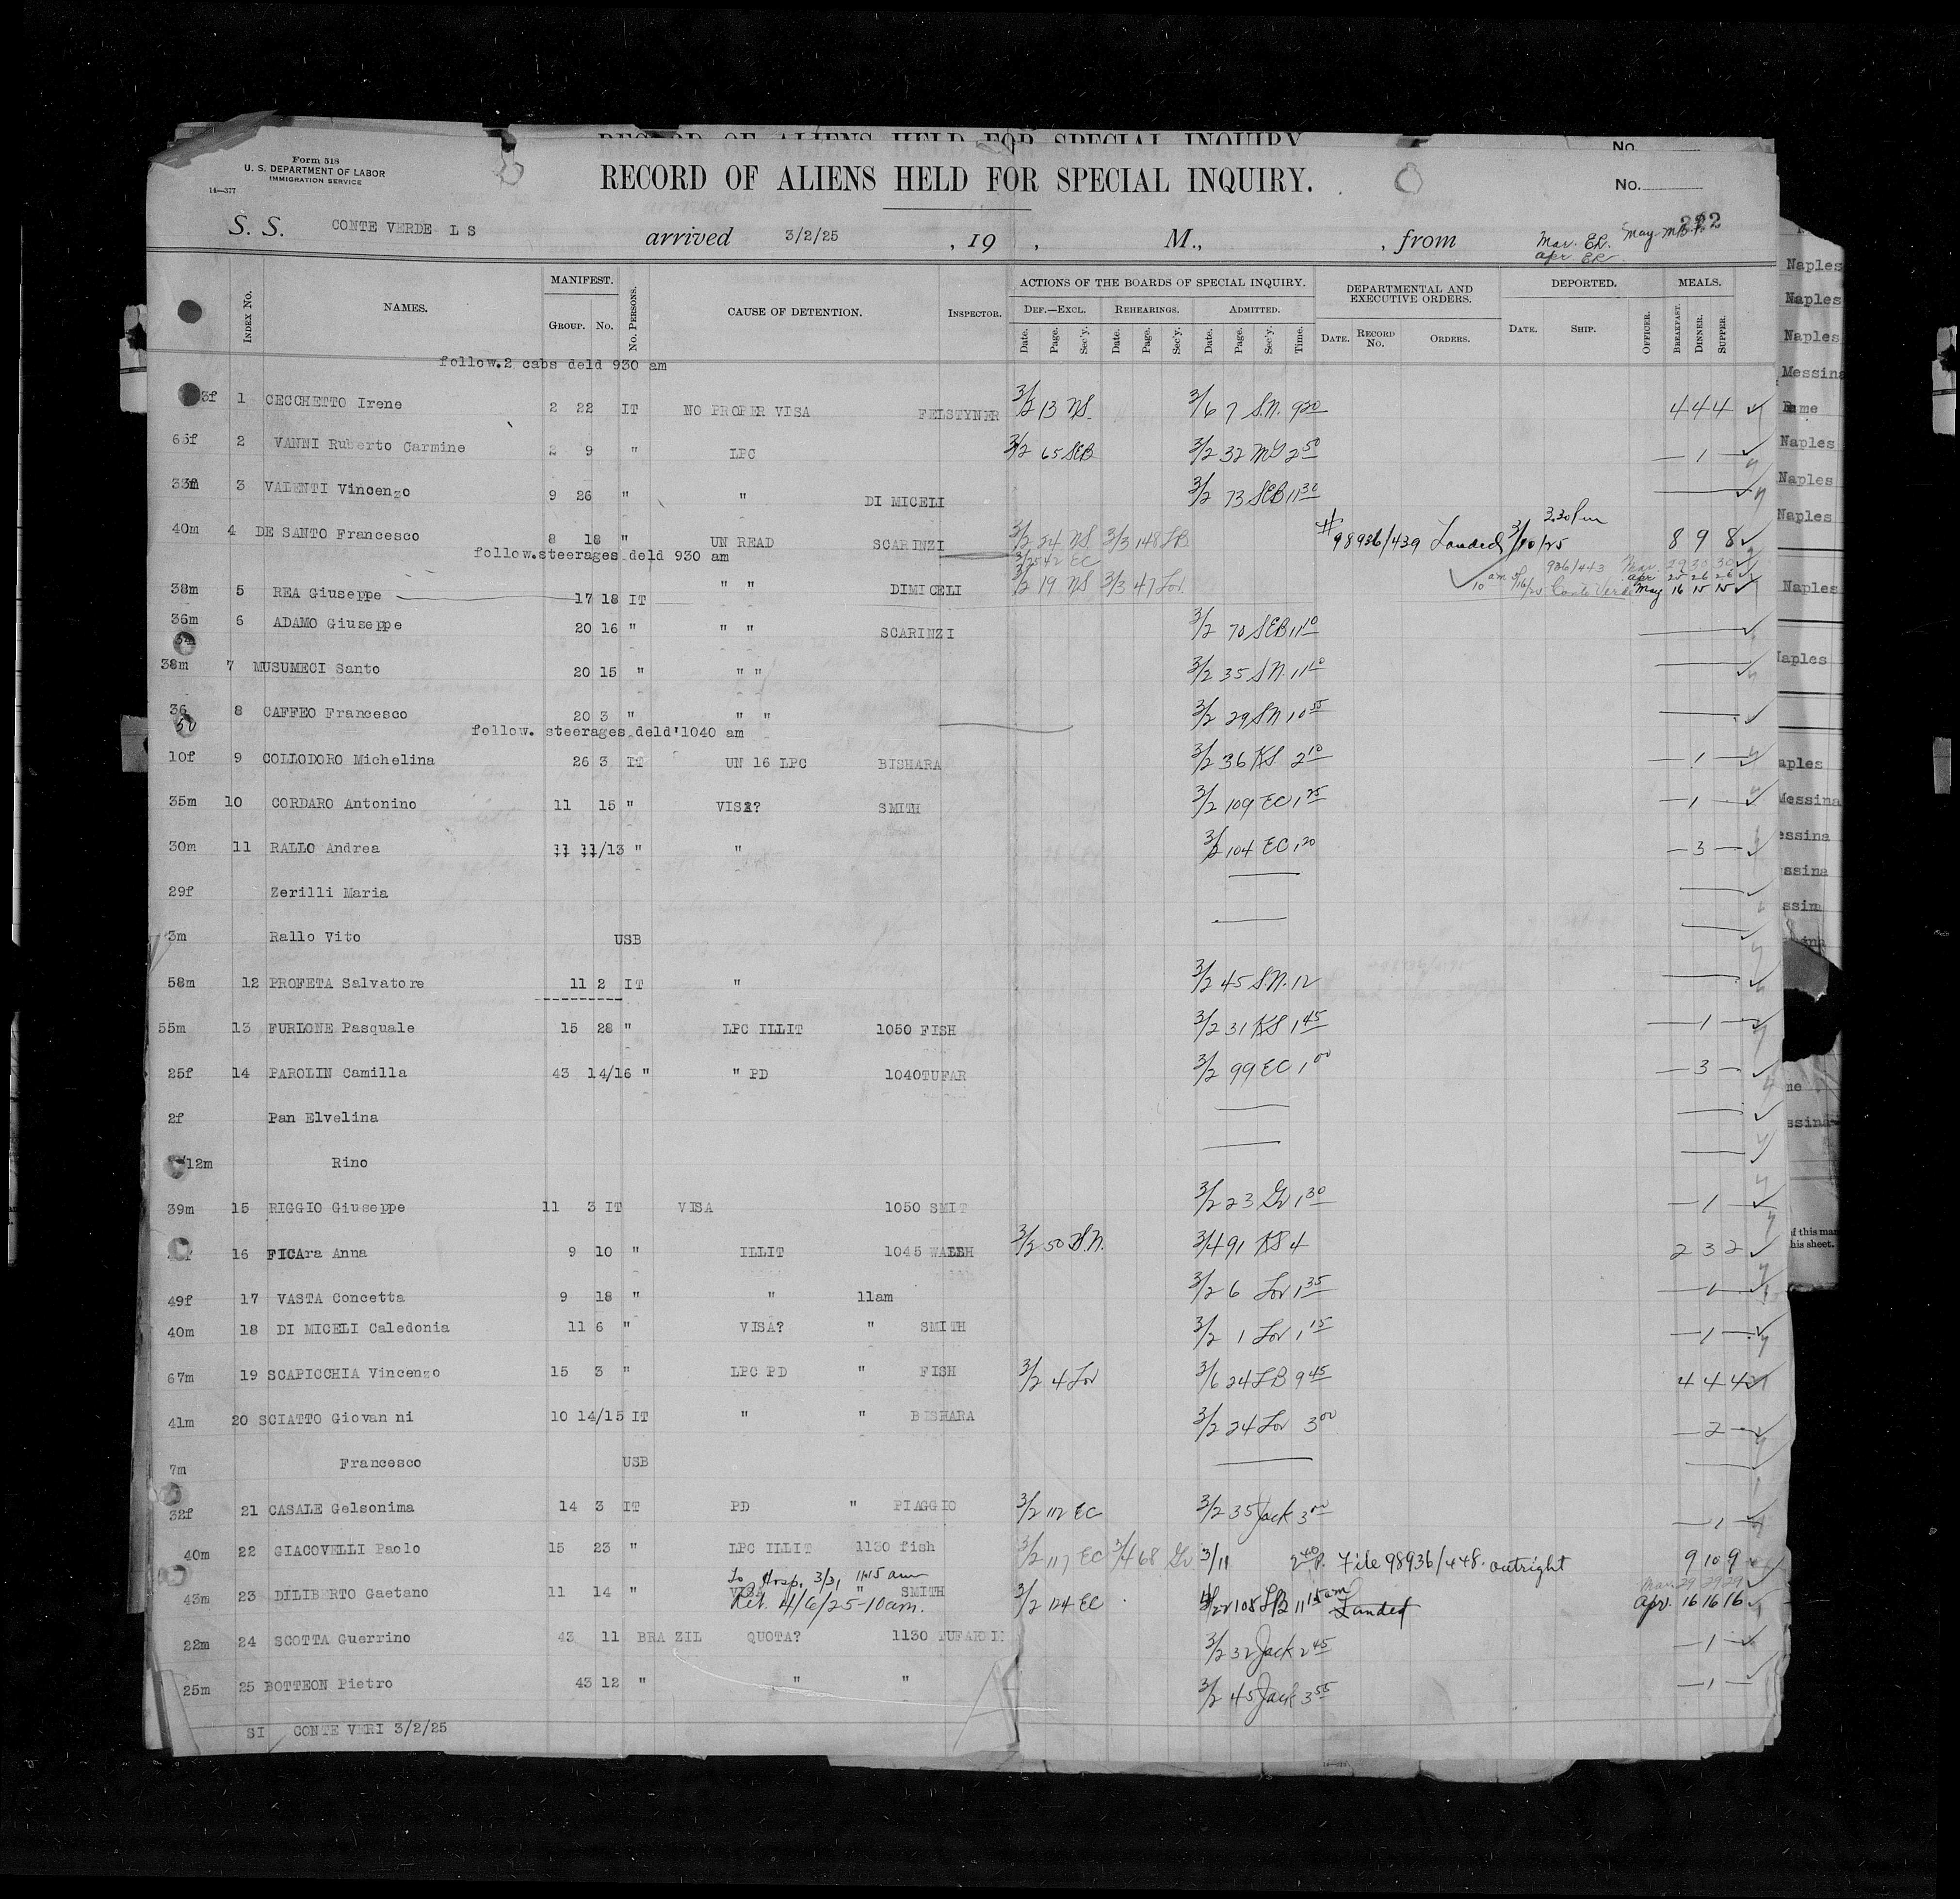 RECORD OF ALIENS HELD FOR SPECIAL INQUIRY
No.
Form 518
U. S. DEPARTMENT OF LABOR
IMMIGRATION SERVICE
14—377
RECORD OF ALIENS HELD FOR SPECIAL INQUIRY.
No.
S. S. CONTE VERDE L S arrived 3/2/25, 19 , M., , from
Mar. ER. May
Apr ER
INDEX No. NAMES. MANIFEST. GROUP. No. No. PERSONS. CAUSE OF DETENTION. INSPECTOR. ACTIONS OF THE BOARDS OF SPECIAL INQUIRY. DEPARTMENTAL AND EXECUTIVE ORDERS. DEPORTED. MEALS.
DEF.—EXCL. REHEARINGS. ADMITTED.
Date. Page. Sec'y. Date. Page. Sec'y. Date. Page. Sec'y. Time. DATE. RECORD No. ORDERS. DATE. SHIP. OFFICER. BREAKFAST. DINNER. SUPPER.
follow.2 cabs deld 930 am
3f 1 CECCHETTO Irene 2 22 IT NO PROPER VISA FEISTYNER 3/2 13 NS. 3/6 7 S.N. 930 4 4 4
65f 2 VANNI Ruberto Carmine 2 9 " LPC 3/2 65 SEB 3/2 32 250 — 1 —
3 VALENTI Vincenzo 9 26 " " DI MICELI 3/2 73 SEB 1130
40m 4 DE SANTO Francesco 8 18 " UN READ SCARINZI 3/2 24 NS 3/3 148 LB # 98936/439 Landed 3/10/25 3.30 Pm 8 9 8
follow.steerages deld 930 am
3/25 42 EC
986/443 Mar. 29 30 30
Apr 25 26 26
38m 5 REA Giuseppe 17 18 IT " " DIMICELI 3/2 19 NS 3/3 47 Lov 10 am 5/16/25 Conte Verde May 16 15 15
36m 6 ADAMO Giuseppe 20 16 " " " SCARINZI 3/2 70 SEB 1110
38m 7 MUSUMECI Santo 20 15 " " " 3/2 35 S.N. 1110
36 8 CAFFEO Francesco 20 3 " " " 3/2 29 S.N 1055
50
follow. steerages deld'1040 am
10f 9 COLLODORO Michelina 26 3 IT UN 16 LPC BISHARA 3/2 36 KS 210 — 1 —
35m 10 CORDARO Antonino 11 15 " VISA? SMITH 3/2 109 EC 125 — 1 —
30m 11 RALLO Andrea 11 11/13 " " 3/2 104 EC 120 — 3 —
29f Zerilli Maria
3m Rallo Vito USB
58m 12 PROFETA Salvatore 11 2 IT " 3/2 45 S.N. 12
55m 13 FURLONE Pasquale 15 28 " LPC ILLIT 1050 FISH 3/2 31 KS 145 — 1 —
25f 14 PAROLIN Camilla 43 14/16 " " PD 1040TUFAR 3/2 99 EC 100 — 3 —
2f Pan Elvelina
12m Rino
39m 15 RIGGIO Giuseppe 11 3 IT VISA 1050 SMIT 3/2 23 Gr 130 — 1 —
16 FICAra Anna 9 10 " ILLIT 1045 WALSH 3/2 50 S.N. 3/4 91 KS 4 2 3 2
49f 17 VASTA Concetta 9 18 " " 11am 3/2 6 Lov 135 — 1 —
40m 18 DI MICELI Caledonia 11 6 " VISA? " SMITH 3/2 1 Lov 115 — 1 —
67m 19 SCAPICCHIA Vincenzo 15 3 " LPC PD " FISH 3/2 4 Lov 3/6 24 LB 945 4 4 4
41m 20 SCIATTO Giovan ni 10 14/15 IT " " BISHARA 3/2 24 Lov 300 — 2 —
7m Francesco USB
32f 21 CASALE Gelsonima 14 3 IT PD " PIAGGIO 3/2 112 EC 3/2 35 Jack 300 — 1 —
40m 22 GIACOVELLI Paolo 15 23 " LPC ILLIT 1130 fish 3/2 117 EC 3/4 68 Gr 3/11 240 P. File 98936/448. outright 9 10 9
To Hosp. 3/31 1115 am
Mar. 29 29 29
43m 23 DILIBERTO Gaetano 11 14 " VISA " SMITH 3/2 124 EC 4/22 108 LB 1115 am Landed Apr. 16 16 16
Ret. 4/6/25-10am.
22m 24 SCOTTA Guerrino 43 11 BRA ZIL QUOTA? 1130 TUFARDI 3/2 32 Jack 245 — 1 —
25m 25 BOTTEON Pietro 43 12 " " " 3/2 45 Jack 355 — 1 —
SI CONTE VERI 3/2/25
Naples
Naples
Naples
Messina
Naples
Naples
Naples
Naples
Naples
aples
Messina
essina
ssina
ssina
of this man
his sheet.